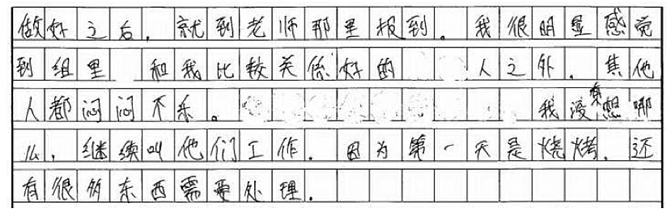 做好之后，就到老师那里报到。我很明显感觉
到组里 和我比较关係好的 人之外，其他
人都闷闷不乐。 我没想哪
么，继续叫他们工作。因为第一天是烧烤，还
有很多东西需要处理。